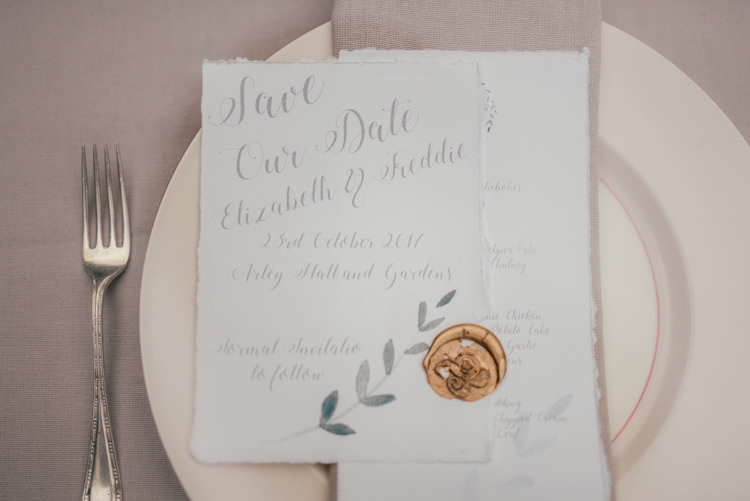 Save
Our Date
Elizabeth & Freddie
23rd October 2017
Arley Hall and Gardens
Formal Invitatio
to follow
Cake
Chutney
Chicken
Potato Cake
Garlic
Cream